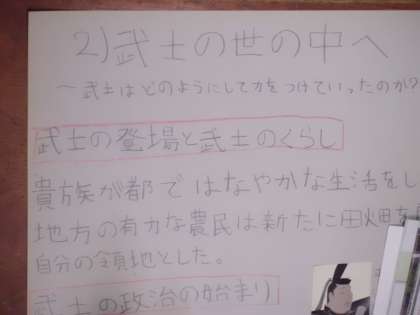 2)武士の世の中へ
〜武士はどのようにして力をつけていったのか?
武士の登場と武士のくらし
貴族が都ではなやかな生活をし
地方の有力な農民は新たに田畑を
自分の領地とした。
武士の政治の始まり